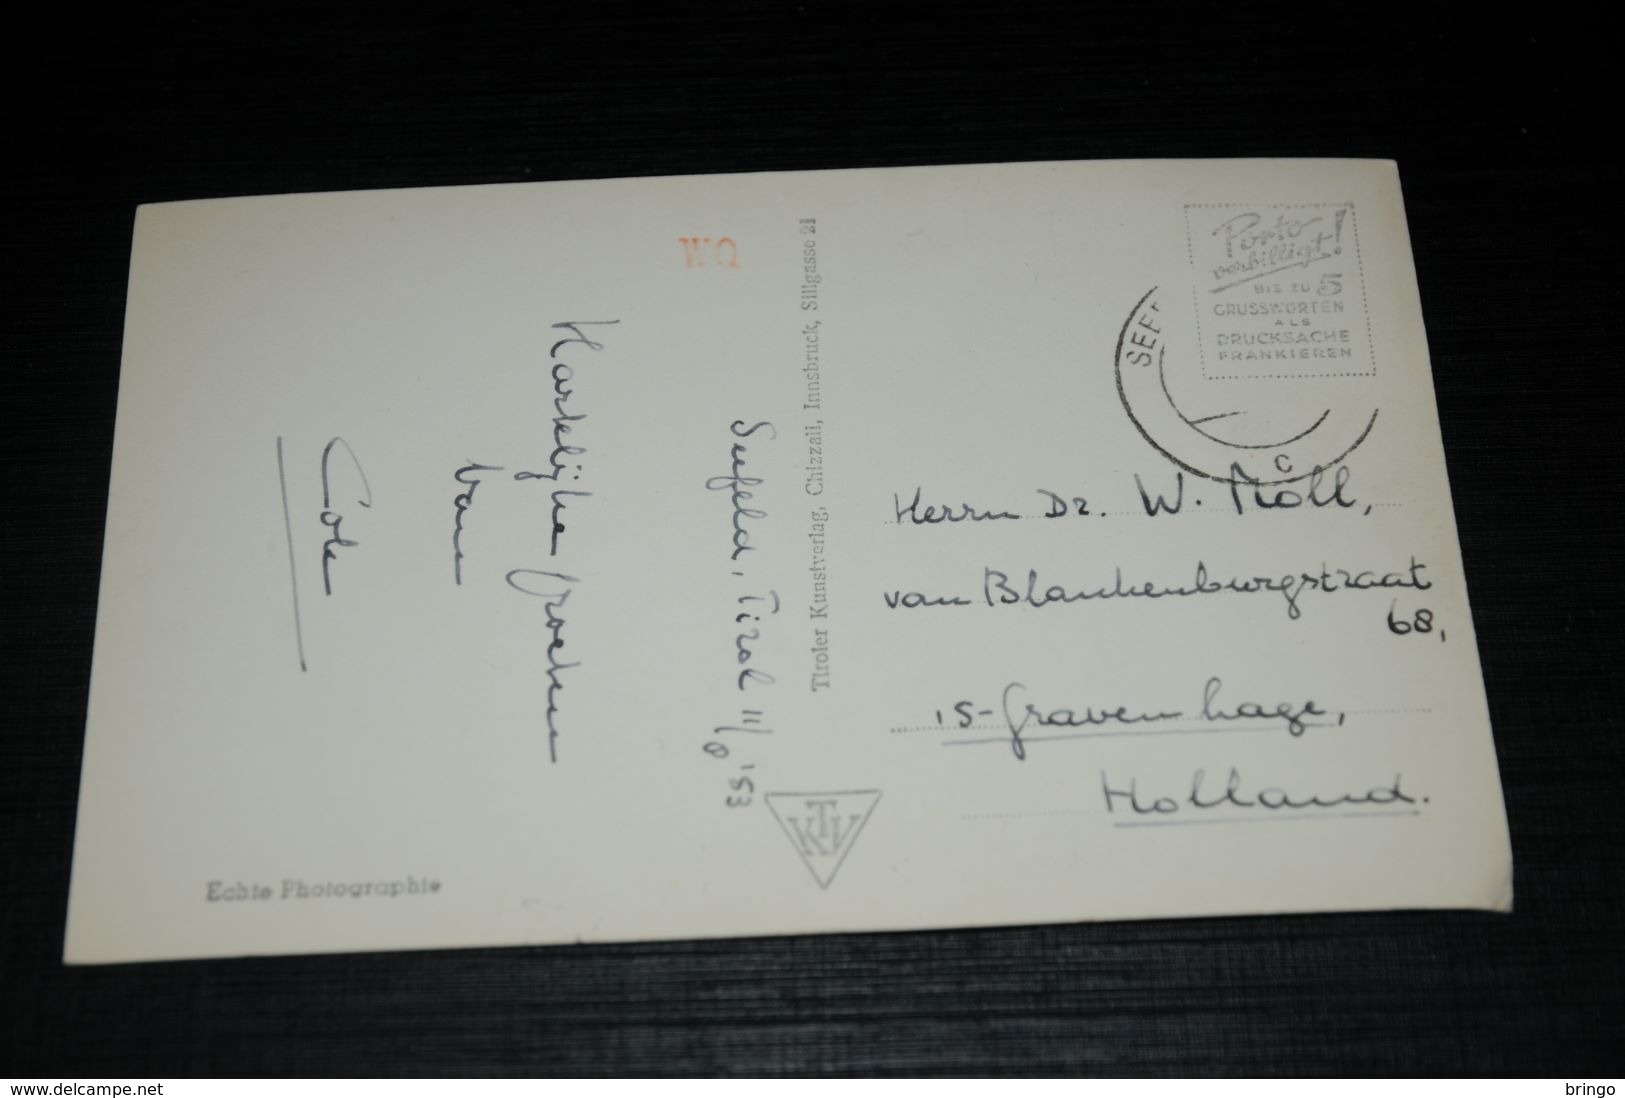 Seefeld, Tirol 11/8 '53
Hartelijke groeten
van
Cole
Echte Photographie
WQ
Tiroler Kunstverlag, Chizzali, Innsbruck, Sillgasse 21
KTV
Porto
verbilligt!
BIS ZU 5
GRUSSWORTEN
ALS
DRUCKSACHE
FRANKIEREN
SEEF
c
Herrn Dr. W. Moll,
van Blankenburgstraat
68,
's-Gravenhage,
Holland.
www.delcampe.net
bringo